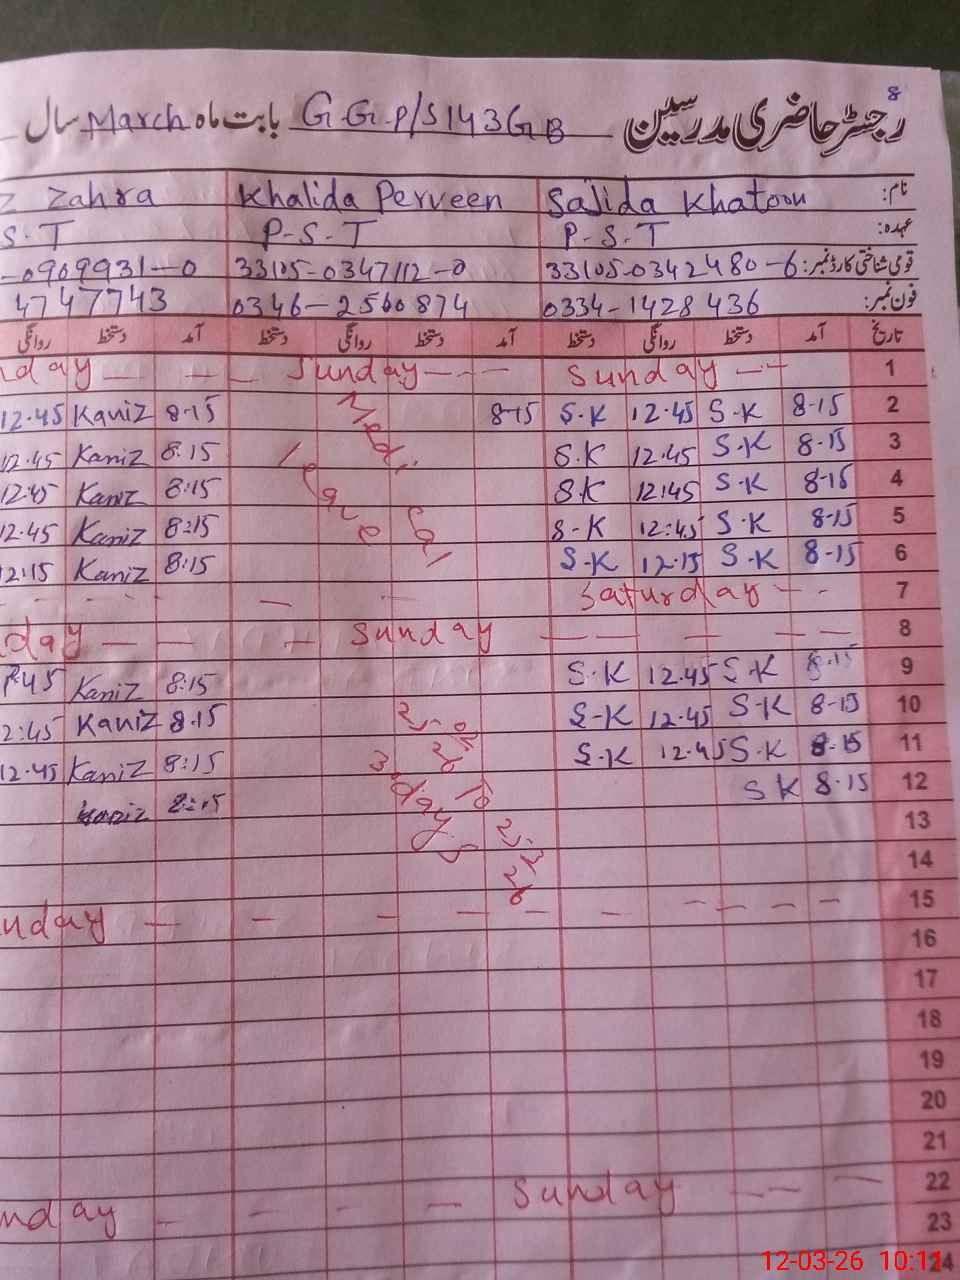 8
رجسٹر حاضری مدرسین G.G.P/S 143 GB بابت ماہ March سال
نام: Sajida Khatoon Khalida Perveen Z Zahra
عہدہ: P-S-T P-S-T S.T
قومی شناختی کارڈ نمبر: 33105-0342480-6 33105-0347112-0 -0909931-0
فون نمبر: 0334-1428436 0346-2560874 4747743
تاریخ آمد دستخط روانگی دستخط آمد دستخط روانگی دستخط آمد دستخط روانگی
1 Sunday Sunday nday
2 8-15 S-K 12.45 S-K 8-15 8-15 Kaniz 12.45
3 8-15 S-K 12.45 S.K 8.15 Kaniz 12.45
4 8-15 S-K 12:45 S.K 8:15 Kaniz 12:45
5 8-15 S-K 12:45 S-K 8:15 Kaniz 12.45
6 8-15 S-K 12.15 S-K 8:15 Kaniz 12:15
Medi Cal
leave
7 Saturday - -
8 Sunday day
9 8.15 S-K 12.45 S.K 8:15 Kaniz .45
10 8-15 S-K 12.45 S-K 8.15 Kaniz 2:45
11 8-15 S-K 12.45 S-K 8:15 Kaniz 12.45
12 8.15 S K 8:15 Kaniz
3 days
To
13
14
15 unday
16
17
18
19
20
21
22 Sunday nday
23
24
12-03-26 10:11